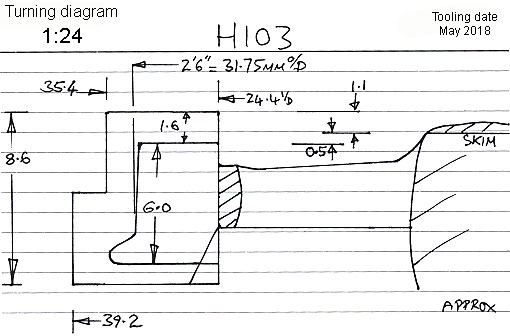 Turning diagram
Tooling date
May 2018
1:24
H103
2'6" = 31.75MM O/D
35.4
24.4 I/D
1.1
1.6
0.5
SKIM
8.6
6.0
APPROX
39.2